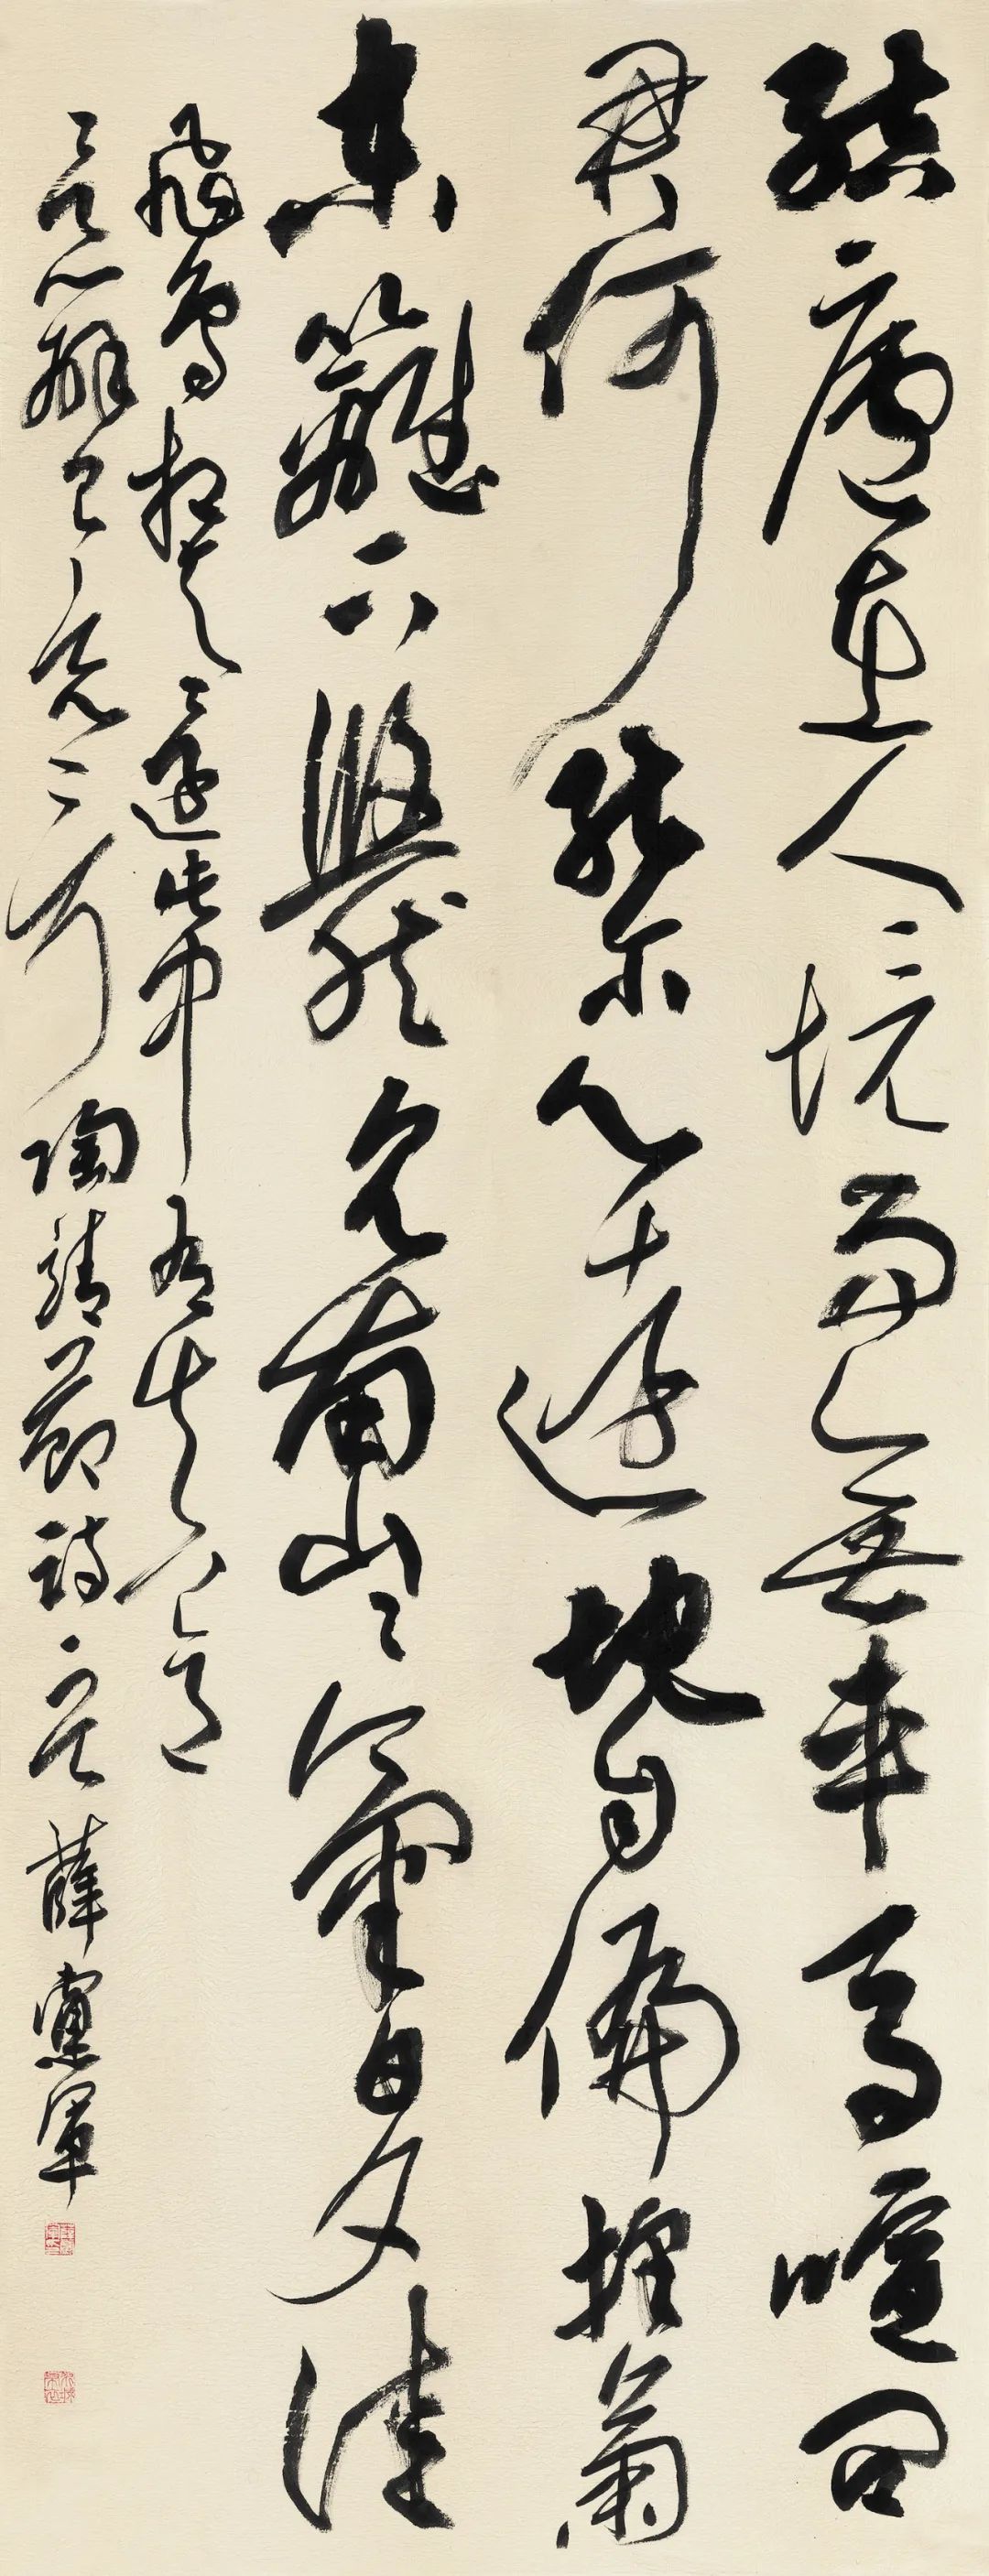 結廬在人境而無車馬喧問
君何能爾心遠地自偏採菊
東籬下悠然見南山〻氣日夕佳
飛鳥相與還此中有真意
辨已 陶靖節詩 薛黨軍